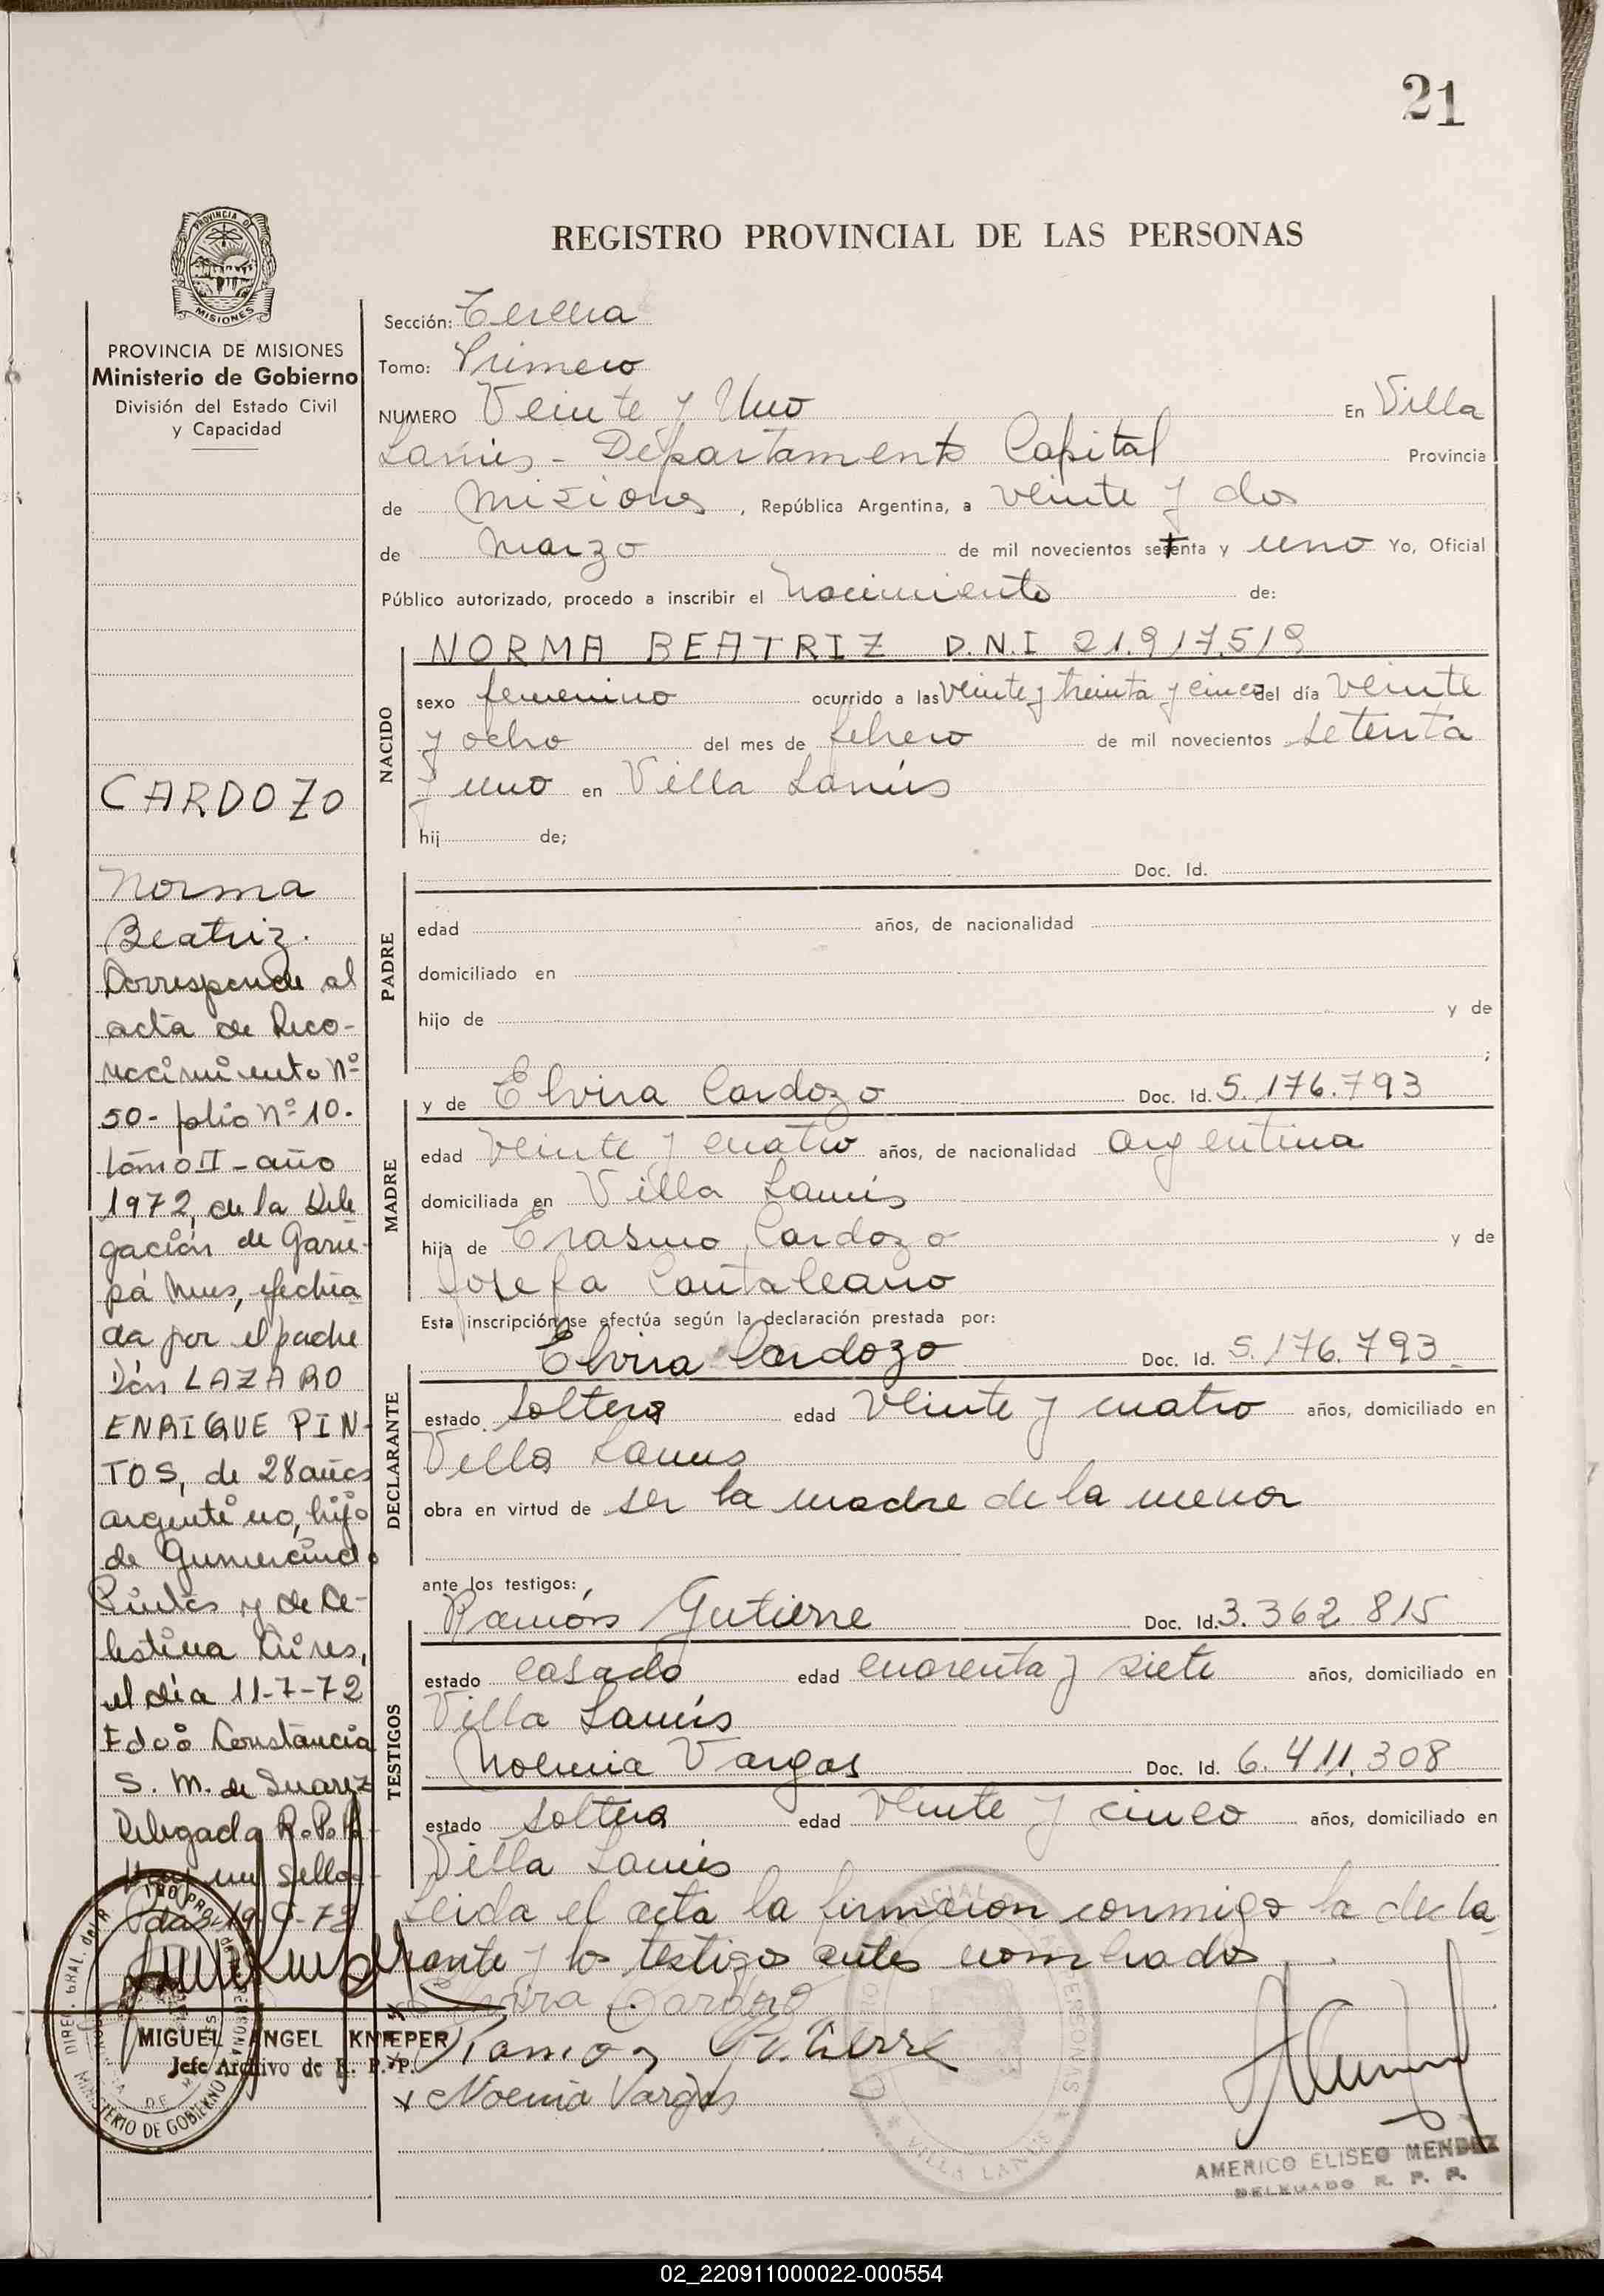 21
PROVINCIA DE
MISIONES
PROVINCIA DE MISIONES
Ministerio de Gobierno
División del Estado Civil
y Capacidad
CARDOZO
Norma
Beatriz.
Corresponde al
acta de Reco-
nocimiento Nº
50- folio Nº 10.
tomo II - año
1972, de la Dele
gación de Garu-
pá Mnes, efectua
da por el padre
Don LAZARO
ENRIQUE PIN-
TOS, de 28 años
argentino, hijo
de Gumercindo
Pintos y de Ce-
lestina
el día 11-7-72
Fdo: Constancia
S. M. de Suarez
Delegada R.P.P.
Hay un sello.
MIGUEL ANGEL KNIEPER
Jefe Archivo de R. P. P.
REGISTRO PROVINCIAL DE LAS PERSONAS
Sección: Tercera
Tomo: Primero
NUMERO Veinte y Uno En Villa
Lanús - Departamento Capital Provincia
de Misiones, República Argentina, a veinte y dos
de Marzo de mil novecientos setenta y uno Yo, Oficial
Público autorizado, procedo a inscribir el Nacimiento de:
NACIDO
NORMA BEATRIZ D.N.I 21.917.519
sexo femenino ocurrido a las veinte y treinta y cinco del día veinte
y ocho del mes de febrero de mil novecientos setenta
y uno en Villa Lanús
hij de;
PADRE
Doc. Id.
edad años, de nacionalidad
domiciliado en
hijo de y de
;
MADRE
y de Elvira Cardozo Doc. Id. 5.176.793
edad veinte y cuatro años, de nacionalidad argentina
domiciliada en Villa Lanús
hija de Erasmo Cardozo y de
Josefa Cantaleano
Esta inscripción se efectúa según la declaración prestada por:
DECLARANTE
Elvira Cardozo Doc. Id. 5.176.793
estado soltera edad veinte y cuatro años, domiciliado en
Villa Lanus
obra en virtud de ser la madre de la menor
ante los testigos:
TESTIGOS
Ramón Gutierre Doc. Id. 3.362.815
estado casado edad cuarenta y siete años, domiciliado en
Villa Lanús
Noemia Vargas Doc. Id. 6.411.308
estado soltera edad veinte y cinco años, domiciliado en
Villa Lanús
Leida el acta la firmaron conmigo la decla
rante y los testigos antes nombrados
Elvira Cardozo
Ramon Gutierre
x Noemia Vargas
VILLA LANUS
AMERICO ELISEO MENDEZ
DELEGADO R. P. P.
02_220911000022-000554